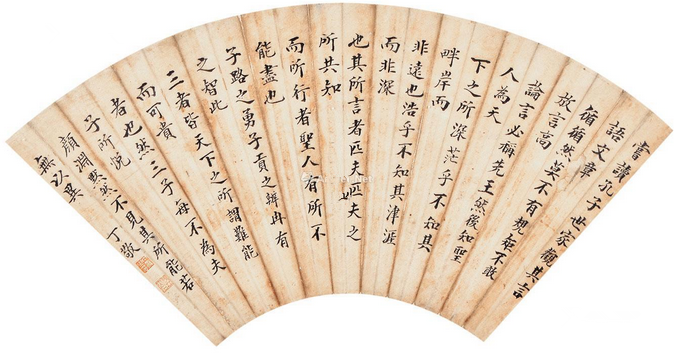 嘗讀孔子世家觀其言
語文章
循循然莫不有規矩不敢
放言高
論言必稱先王然後知聖
人為天
下之所深茫乎不知其
畔岸而
非遠也浩乎不知其津涯
而非深
也其所言者匹夫匹夫之
所共知
而所行者聖人有所不
能盡也
子路之勇子貢之辨冉有
之智此
三者皆天下之所謂難能
而可貴
者也然三子每不為夫
子所悅
顏淵默然不見其所能若
無以異
丁敬